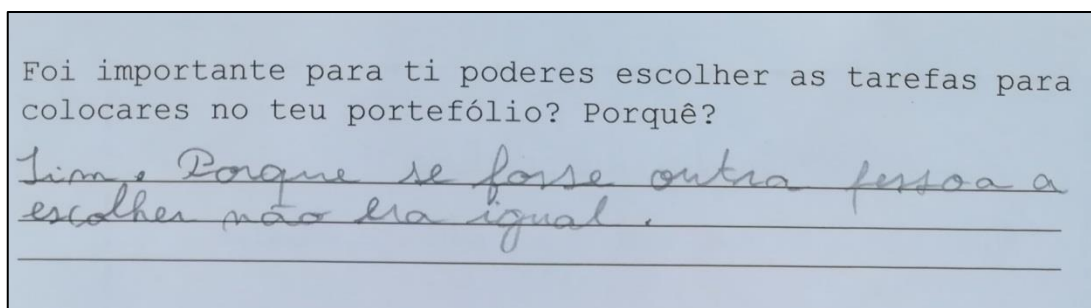 Foi importante para ti poderes escolher as tarefas para
colocares no teu portefólio? Porquê?
Sim. Porque se fosse outra pessoa a
escolher não era igual.